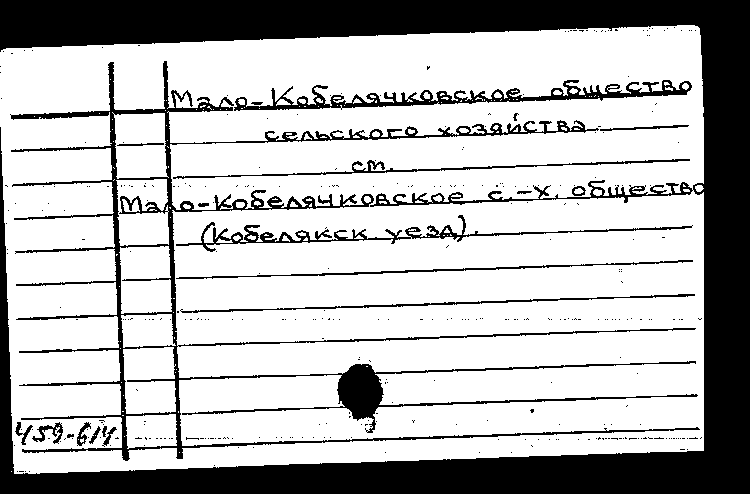 Мало-Кобелячковское общество
сельского хозяйства
см.
Мало-Кобелячковское с.-х. общество
(Кобелякск уезд).
459-614